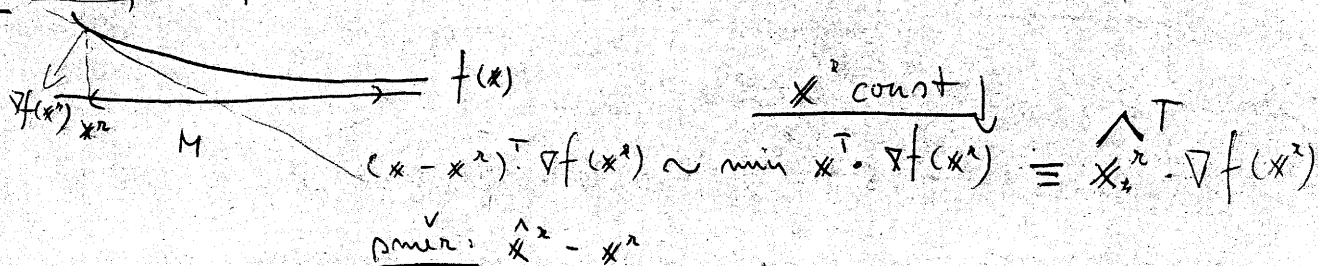 f(x)
∇f(x^r) x^r
M
x^r const
(x - x^r)^T · ∇f(x^r) ~ min x^T · ∇f(x^r) ≡ x̂^r^T · ∇f(x^r)
směr: x̂^r - x^r